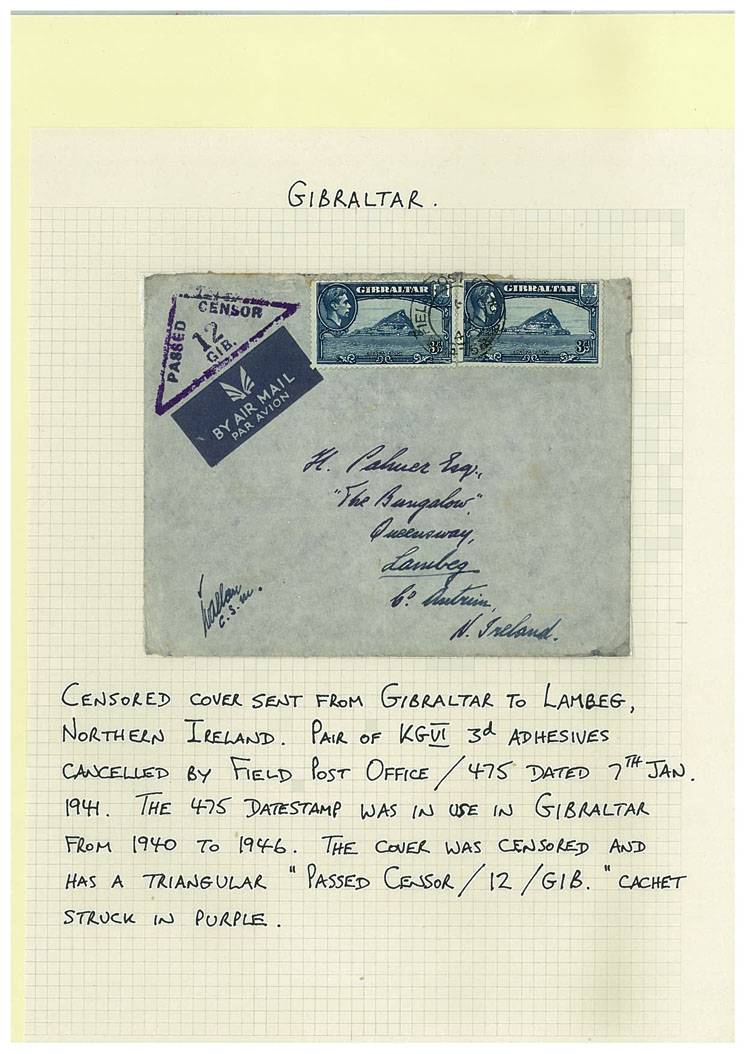 GIBRALTAR.
PASSED
CENSOR
12
GIB.
BY AIR MAIL
PAR AVION
GIBRALTAR
3d
GIBRALTAR
3d
H. Palmer Esq.,
"The Bungalow"
Queensway,
Lambeg
Co Antrim,
N. Ireland.
C.S.M.
CENSORED COVER SENT FROM GIBRALTAR TO LAMBEG,
NORTHERN IRELAND. PAIR OF KGVI 3d ADHESIVES
CANCELLED BY FIELD POST OFFICE / 475 DATED 7TH JAN.
1941. THE 475 DATESTAMP WAS IN USE IN GIBRALTAR
FROM 1940 TO 1946. THE COVER WAS CENSORED AND
HAS A TRIANGULAR "PASSED CENSOR / 12 / GIB." CACHET
STRUCK IN PURPLE.